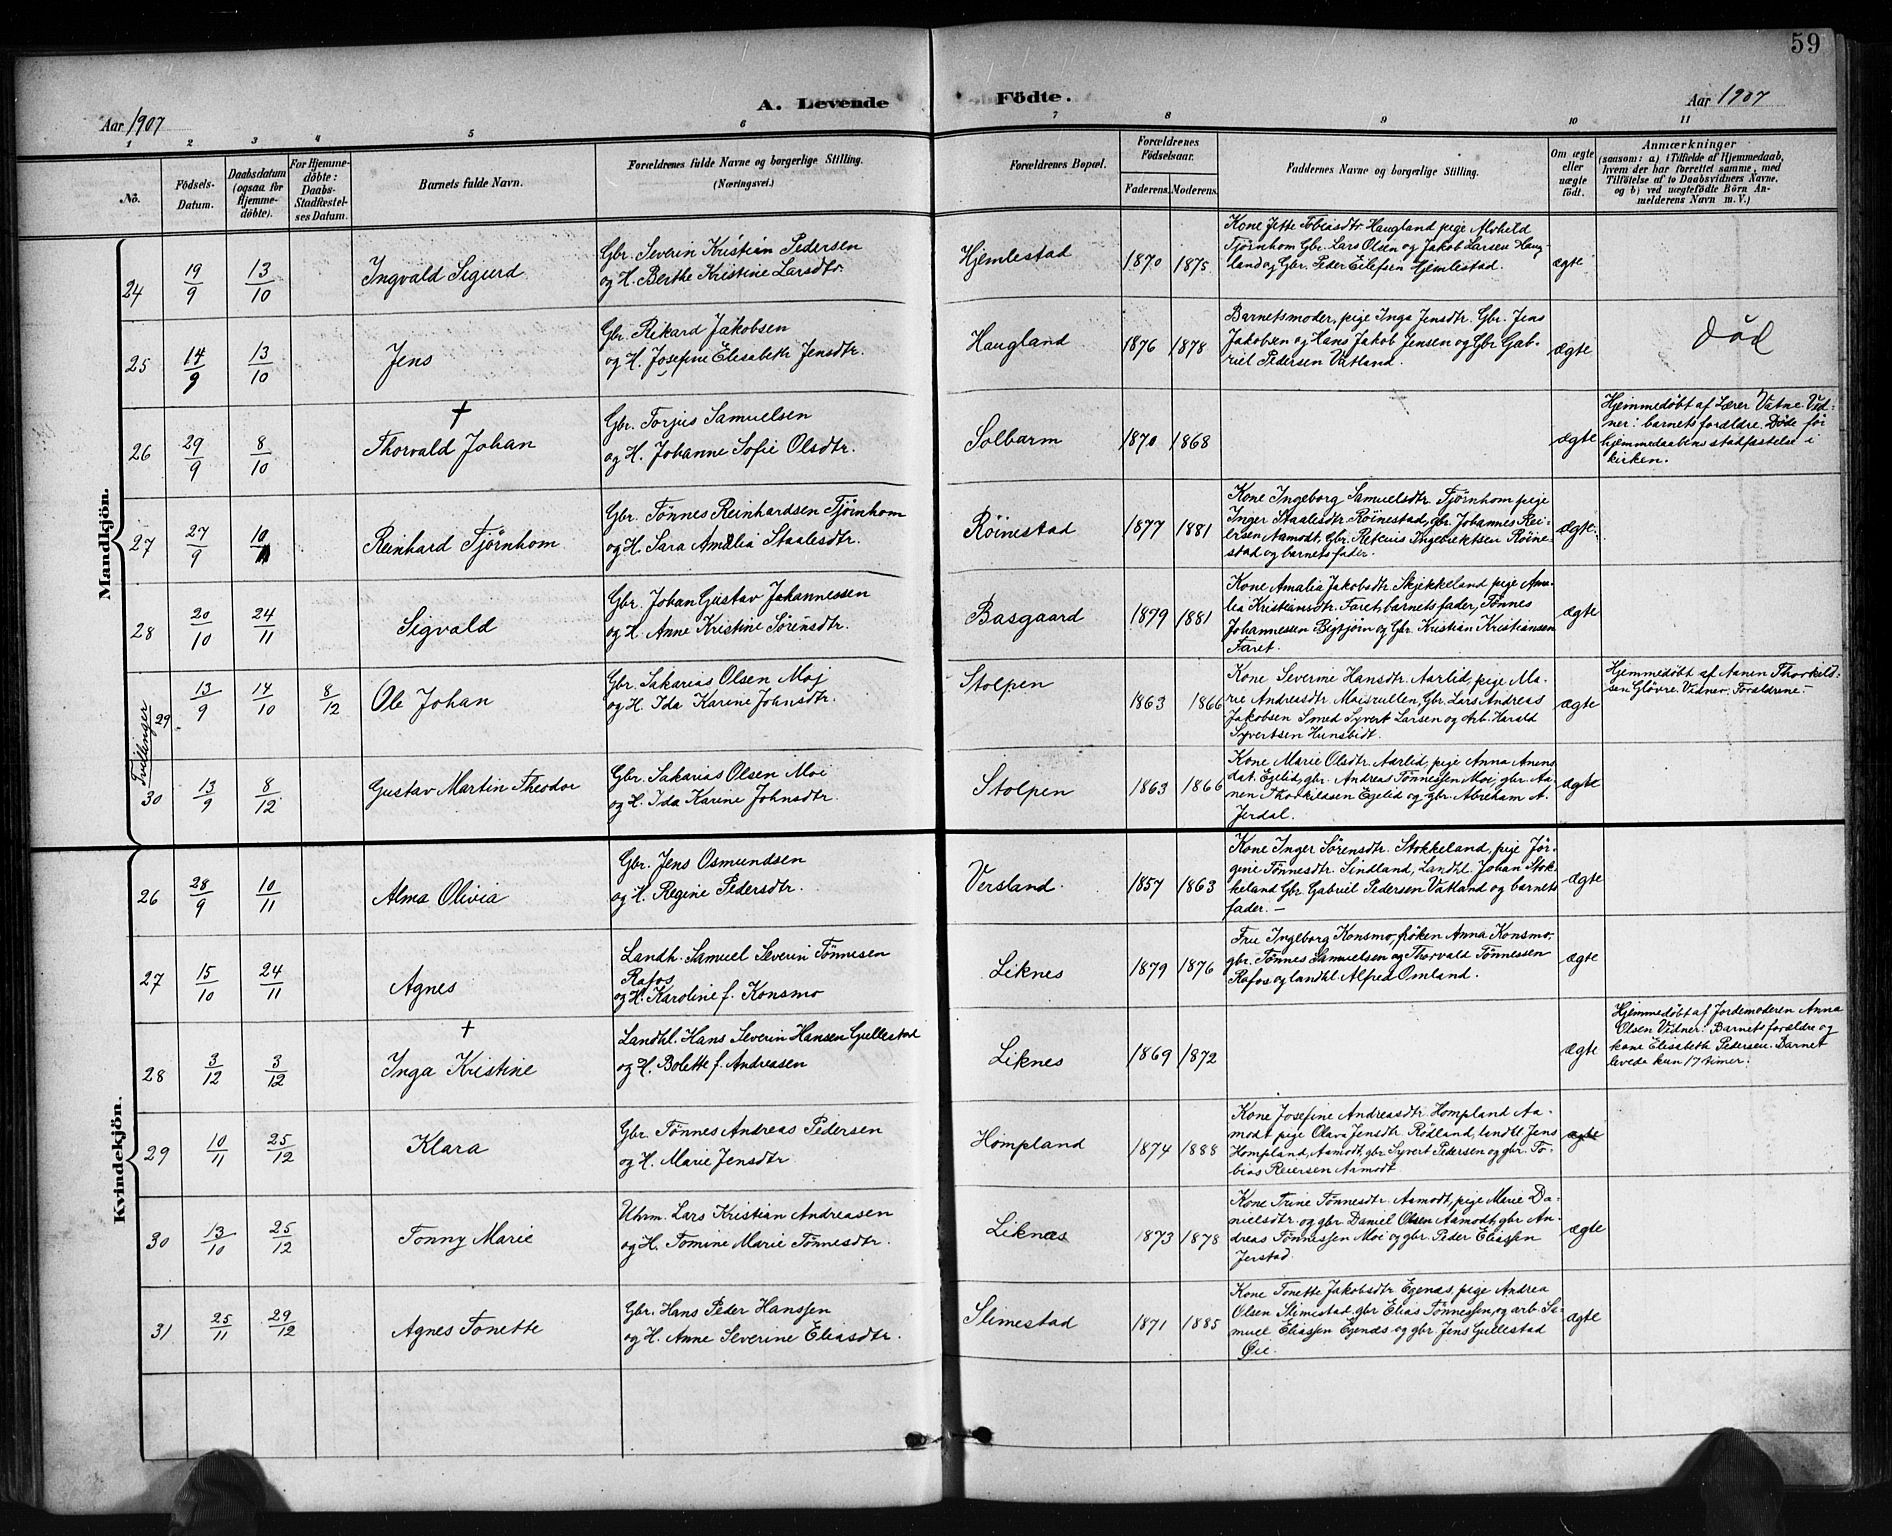 59
A. Levende Födte.
Aar 1907
Aar 1907
1 2 3 4 5 6 7 8 9 10 11
No.
Födsels-Datum.
Daabsdatum (ogsaa for Hjemme-döbte).
For Hjemme-döbte: Daabs-Stadfæstel-ses Datum.
Barnets fulde Navn.
Forældrenes fulde Navne og borgerlige Stilling.
(Næringsvei.)
Forældrenes Bopæl.
Forældrenes Födselsaar.
Faderens. Moderens.
Faddernes Navne og borgerlige Stilling.
Om ægte eller uægte födt.
Anmærkninger
(saasom: a) i Tilfælde af Hjemmedaab,
hvem der har forrettet samme, med
Tilföielse af to Daabsvidners Navne.
og b) ved uægtefödte Börn An-
melderens Navn m. V.)
Mandkjön.
24 19/9 13/10 Ingvald Sigurd
Gbr. Severin Kristian Pedersen
og H. Berthe Kristine Larsdtr.
Hjemlestad 1870 1875
Kone Jette Tobiasdtr. Haugland pige Alvhild
Tjørnhom Gbr. Lars Olsen og Jakob Larsen Haug-
land og Gbr. Peder Eilefsen Hjemlestad.
ægte
25 14/9 13/10 Jens
Gbr. Rikard Jakobsen
og H. Josefine Elisabeth Jensdtr.
Haugland 1876 1878
Barnets moder, pige Inga Jensdtr. Gbr. Jens
Jakobsen og Hans Jakob Jensen og Gbr Gab-
riel Pedersen Vatland.
ægte
død
26 29/9 8/10 † Thorvald Johan
Gbr. Torjus Samuelsen
og H. Johanne Sofie Olsdtr.
Solbarm 1870 1868
ægte
Hjemmedøbt af Lærer Vatne. Vid-
ner: barnets forældre. Døde før
hjemmedaabens stadfæstelse i
kirken.
27 27/9 10/11 Reinhard Tjørnhom
Gbr. Tönnes Reinhardsen Tjörnhom
og H. Sara Amalia Staalesdtr.
Röinestad 1877 1881
Kone Ingeborg Samuelsdtr. Tjørnhom pige
Inger Staalesdtr. Røinestad, gbr. Johannes Rei-
ersen Aamodt, Gbr. Retenis Ingebrektsen Röine-
stad og barnets fader.
ægte.
28 20/10 24/11 Sigvald
Gbr. Johan Gustav Johannessen
og H. Anne Kristine Sørensdtr.
Basgaard 1879 1881
Kone Amalia Jakobsdtr. Skjekkeland pige Ama-
lea Kristiansdtr. Faret, barnets fader, Tönnes
Johannessen Bigtjörn og Gbr. Kristian Kristiansen
Faret.
ægte
Tvillinger
29 13/9 14/10 8/12 Ole Johan
Gbr. Sakarias Olsen Moj
og H. Ida Karine Johnsdtr.
Stolpen 1863 1866
Kone Severine Hansdtr. Aarlid, pige Ma-
rie Andreasdtr. Moisrullen, Gbr. Lars Andreas
Jakobsen Smed Syvert Larsen og Arb. Harald
Syvertsen Hunsbidt.
ægte
Hjemmedøbt af Aanen Thorkild-
sen Glövre. Vidner: Forældrene.
30 13/9 8/12 Gustav Martin Theodor
Gbr. Sakarias Olsen Moi
og H. Ida Karine Johnsdtr.
Stolpen 1863 1866
Kone Marie Olsdtr. Aarlid, pige Anna Anens
dat. Egelid, gbr. Andreas Tønnessen Moi, gbr. Aa-
nen Thorkildsen Egelid og gbr. Abreham A.
Jerdal.
ægte
Kvindekjön.
26 28/9 10/11 Alma Olivia
Gbr. Jens Osmundsen
og H. Regine Pedersdtr.
Versland. 1857 1863
Kone Inger Sörensdtr. Stokkeland, pige Jör-
gine Tönnesdtr. Sindland, Landhl. Johan Stok-
keland Gbr Gabriel Pedersen Vatland og barnets
fader.
ægte
27 15/10 24/11 Agnes
Landh. Samuel Severin Tönnesen
Rafos
og H. Karoline f. Konsmo
Liknes 1879 1876
Fru Ingeborg Konsmo, fröken Anna Konsmo,
gbr. Tönnes Samuelsen og Thorvald Tönnessen
Rafos og landhl Alfred Omland.
ægte
28 3/12 3/12 † Inga Kristine
Landhl. Hans Severin Hansen Gullestad
og H. Bolette f. Andreasen
Liknes 1869 1872
ægte
Hjemmedøbt af Jordemoderen Anna
Olsen Vidner: Barnets forældre og
kone Elisabeth Pedersen. Barnet
levede kun 17 timer.
29 10/11 25/12 Klara
Gbr. Tönnes Andreas Pedersen
og H. Marie Jensdtr.
Hompland 1874 1888
Kone Josefine Andreasdtr. Hompland Aa-
modt pige Olava Jensdtr. Rödland, landhl Jens
Hompland, Aamodt, gbr. Syvert Pedersen og gbr. To-
bias Reiersen Aamodt.
ægte
30 13/10 25/12 Tonny Marie
Uhrm. Lars Kristian Andreasen
og H. Tomine Marie Tönnesdtr.
Liknæs 1873 1878
Kone Trine Tönnesdtr. Aamodt, pige Marie Da-
nielsdtr. og gbr. Daniel Olsen Aamodt, gbr An-
dreas Tönnessen Moi og gbr. Peder Eliassen
Jerstad.
ægte
31 25/11 29/12 Agnes Tonette
Gbr. Hans Peder Hanssen
og H. Anne Severine Eliasdtr.
Slimestad 1871 1885
Kone Tonette Jakobsdtr. Egenæs, pige Andrea
Olsen Slimestad, gbr Elias Tönnessen, og arb. Sa-
muel Eliassen Egenæs og gbr. Jens Gullestad
Öie.
ægte